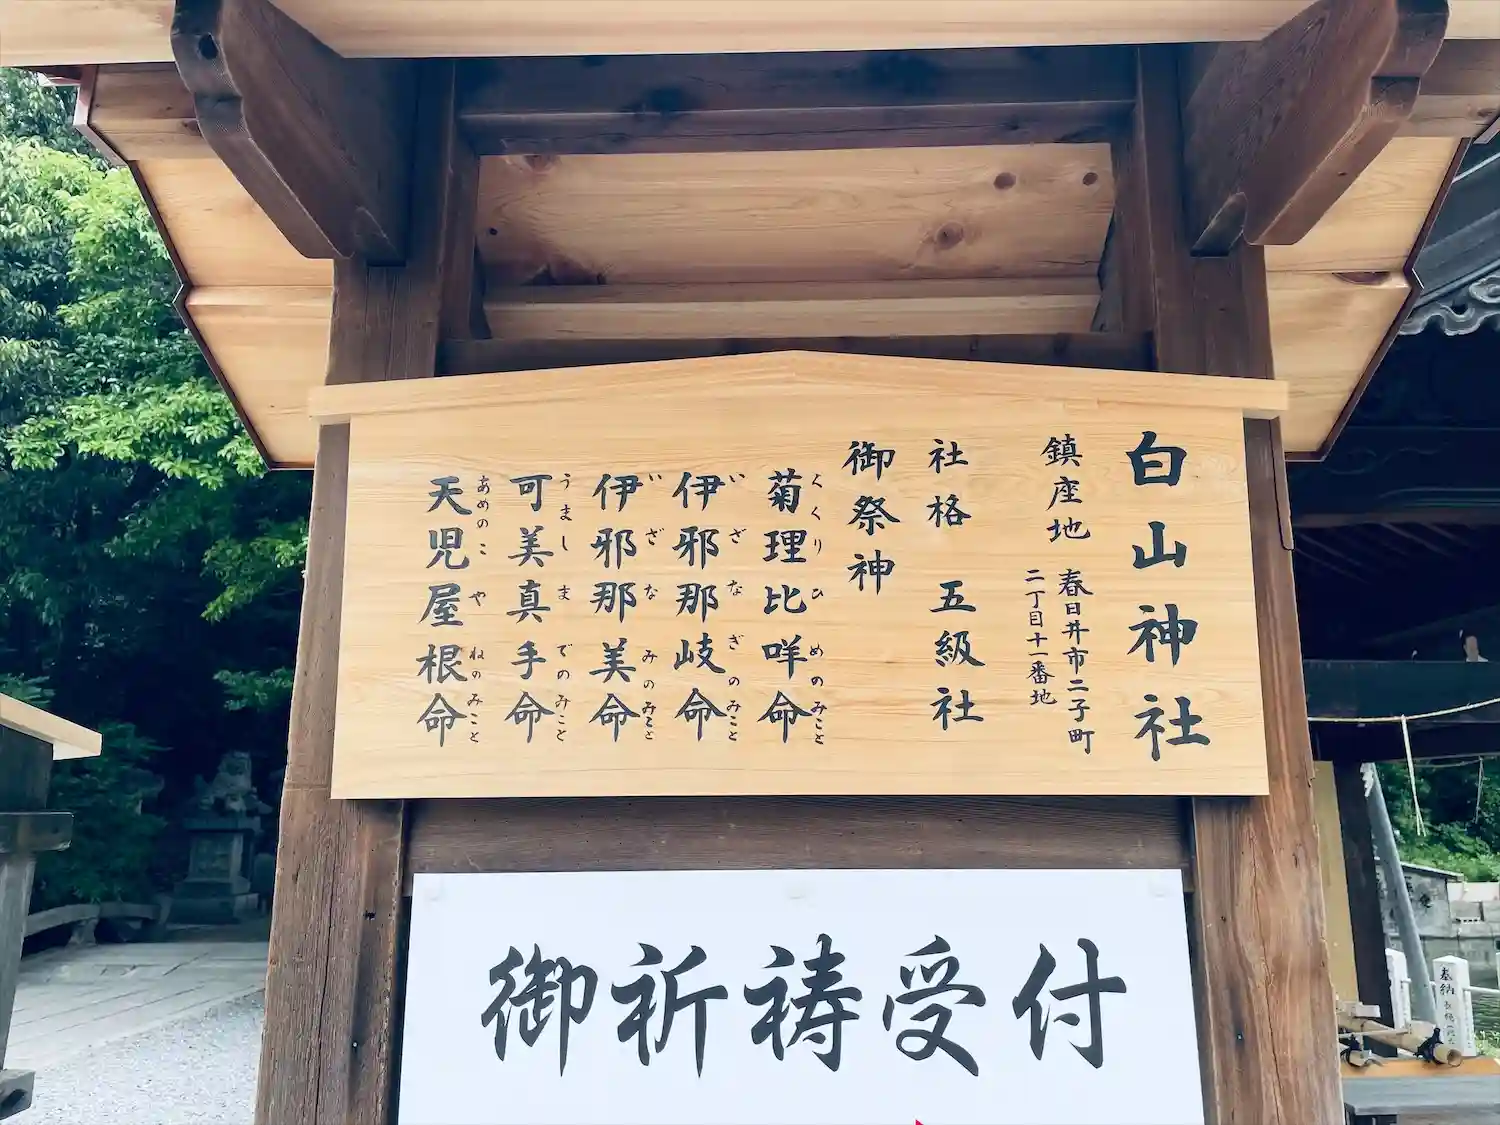 白山神社
鎮座地 春日井市二子町
二丁目十一番地
社格 五級社
御祭神
菊理比咩命
くくりひめのみこと
伊邪那岐命
いざなぎのみこと
伊邪那美命
いざなみのみこと
可美真手命
うましまでのみこと
天児屋根命
あめのこやねのみこと
御祈祷受付
奉納